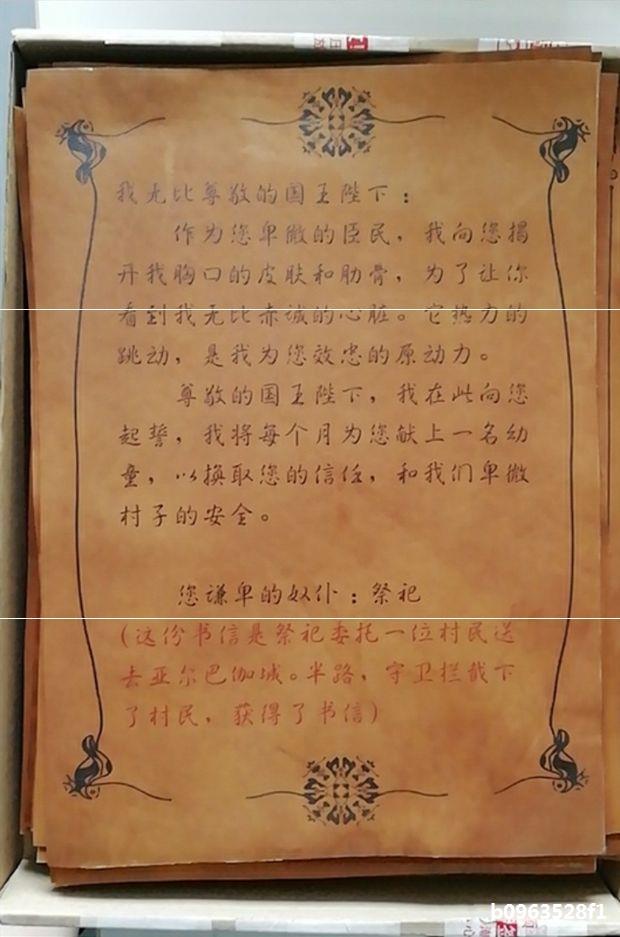 我无比尊敬的国王陛下：
作为您卑微的臣民，我向您揭
开我胸口的皮肤和肋骨，为了让你
看到我无比赤诚的心脏。它热力的
跳动，是我为您效忠的原动力。
尊敬的国王陛下，我在此向您
起誓，我将每个月为您献上一名幼
童，以换取您的信任，和我们卑微
村子的安全。
您谦卑的奴仆：祭祀
(这份书信是祭祀委托一位村民送
去亚尔巴伽城。半路，守卫拦截下
了村民，获得了书信)
b0963528f1